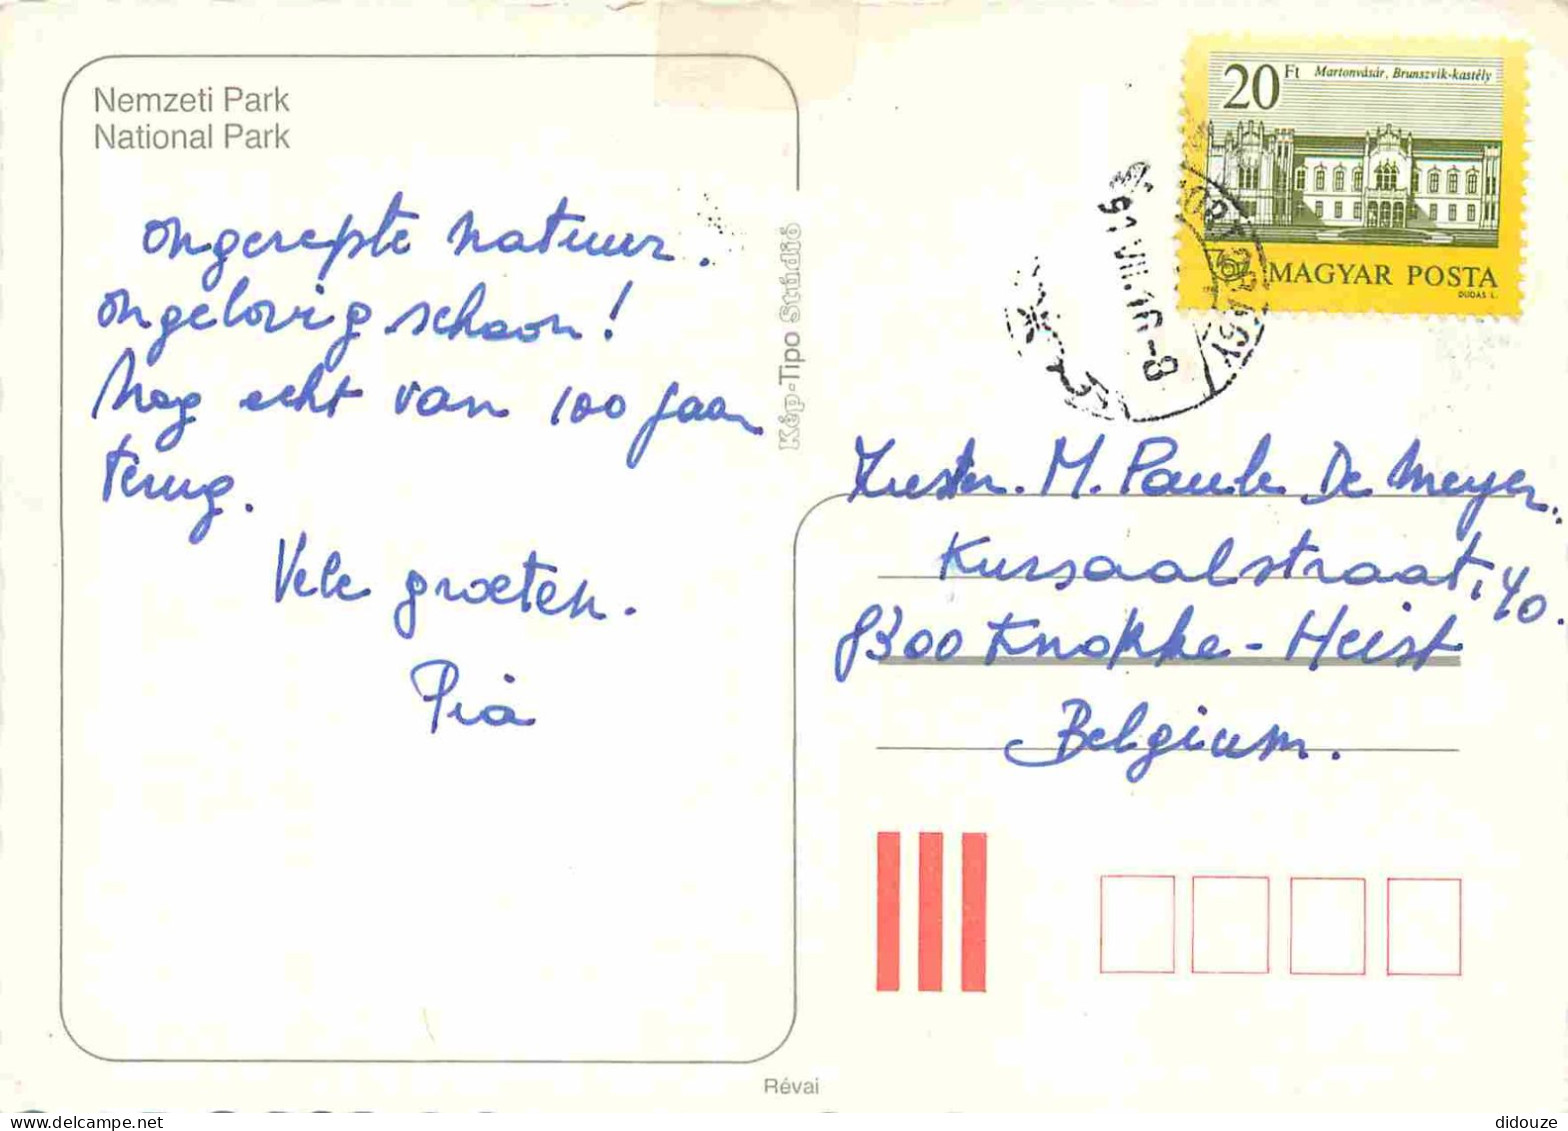 Nemzeti Park
National Park
ongerepte natuur.
ongelovig schoon!
Nog echt van 100 jaar
terug.
Vele groeten.
Pia
Kép-Tipo Stúdió
20 Ft Martonvásár, Brunszvik-kastély
MAGYAR POSTA
DUDÁS L.
91 VIII.16-8
Zuster. M. Paula De Meyer.
Kursaalstraat, 40.
8300 Knokke-Heist
Belgium.
Révai
didouze